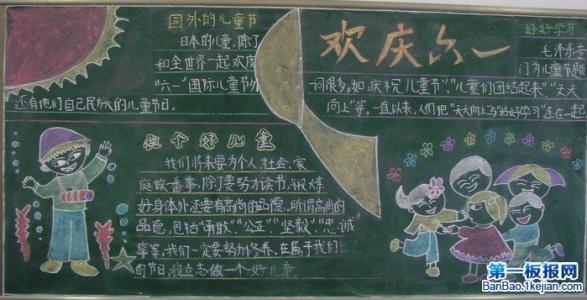 国外的儿童节
日本的儿童,除了
和全世界一起欢度
"六一"国际儿童节外
还有他们自己民族的儿童节日。
欢庆六一
好好学习
毛泽东
门为儿童节题
词很多,如庆祝儿童节""儿童们团结起来""天天
向上"等。一直以来,人们把"天天向上"与"好好学习"连在一起
做个好儿童
我们将来要为个人、社会、家
庭做番事,除了要努力读书、锻炼
好身体外还要有高尚的品德,所谓高尚的
品德,包括"勇敢"、"公正"、"坚毅"、"忠诚"
等等,我们一定要努力修养、在属于我们
的节日,我立志做一个好儿童。
第一板报网
BanBao.1kejian.com